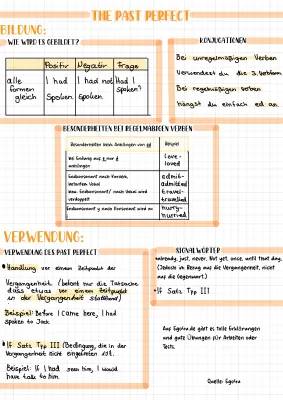 THE PAST PERFECT
BILDUNG:
WIE WIRD ES GEBILDET?
Positiv Negativ Frage
alle formen gleich
I had spoken
I had not spoken
Had I spoken?
KONJUGATIONEN
Bei unregelmäßigen Verben
Verwendest du die 3. Verbform
Bei regelmäßigen Verben
hängst du einfach ed an
BESONDERHEITEN BEI REGELMÄßIGEN VERBEN
Besonderheiten beim Anhängen von ed Beispiel
Bei Endung aus e nur d anhängen
love - loved
Endkonsonant nach kurzem,
betontem Vokal
bzw. Endkonsonant l nach Vokal wird
verdoppelt
admit -
admitted
travel -
travelled
Endkonsonant y nach Konsonant wird zu
hurry -
hurried
VERWENDUNG:
VERWENDUNG DES PAST PERFECT
• Handlung vor einem Zeitpunkt der
Vergangenheit. (betont nur die Tatsache
dass etwas vor einem Zeitpunkt
in der Vergangenheit stattfand)
Beispiel: Before I came here, I had
spoken to Jack
• If Satz Typ III (Bedingung, die in der
Vergangenheit nicht eingetreten ist.
Beispiel: If I had seen him, I would
have talk to him
SIGNALWÖRTER
already, just, never, not yet, once, until that day,
(Jedoch in Bezug auf die Vergangenheit, nicht
auf die Gegenwart.)
• If Satz Typ III
Auf Egofra gibt es tolle Erklärungen
und gute Übungen für Arbeiten oder
Tests.
Quelle: Egofra